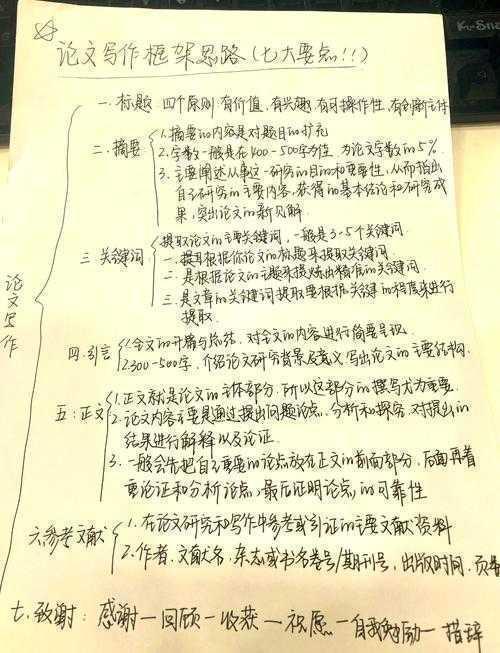 论文写作框架思路(七大要点!!!)
论文写作
一. 标题 四个原则:有价值, 有兴趣, 有可操作性, 有创新
二. 摘要
1. 摘要的内容是对题目的扩充
2. 字数一般是在400-500字为佳, 为论文字数的5%.
3. 主要阐述从事这一研究的目的和重要性, 从而指出
自己研究的主要内容, 获得的基本结论和研究成
果, 突出论文的新见解.
三 关键词
提取论文的主要关键词, 一般是3-5个关键词.
一. 提取根据你论文的标题来提取关键词.
二. 是根据论文的主题来提炼出精准的关键词.
三. 是文章的关键词提取要根据关键的程度来进行
提取.
四. 引言
1. 全文的开篇与总结, 对全文的内容进行简要呈现.
2. 300-500字, 介绍论文研究背景及意义, 写出论文的主要结构.
五: 正文
1. 正文就是论文的主体部分, 所以这部分的撰写尤为重要.
2. 论文内容主要是通过提出问题论点, 分析和探究, 对提出的
结果进行解释以及论证.
3. 一般会先把自己重要的论点放在正文的前面部分, 后面再着
重论证和分析论点, 最后证明论点的可靠性
六. 参考文献
1. 在论文研究和写作中参考或引证的主要文献资料
2. 作者, 文献名, 杂志或书名卷号/期刊号, 出版时间, 页
七. 致谢: 感谢一回顾一收获一祝愿一自我勉励一措辞